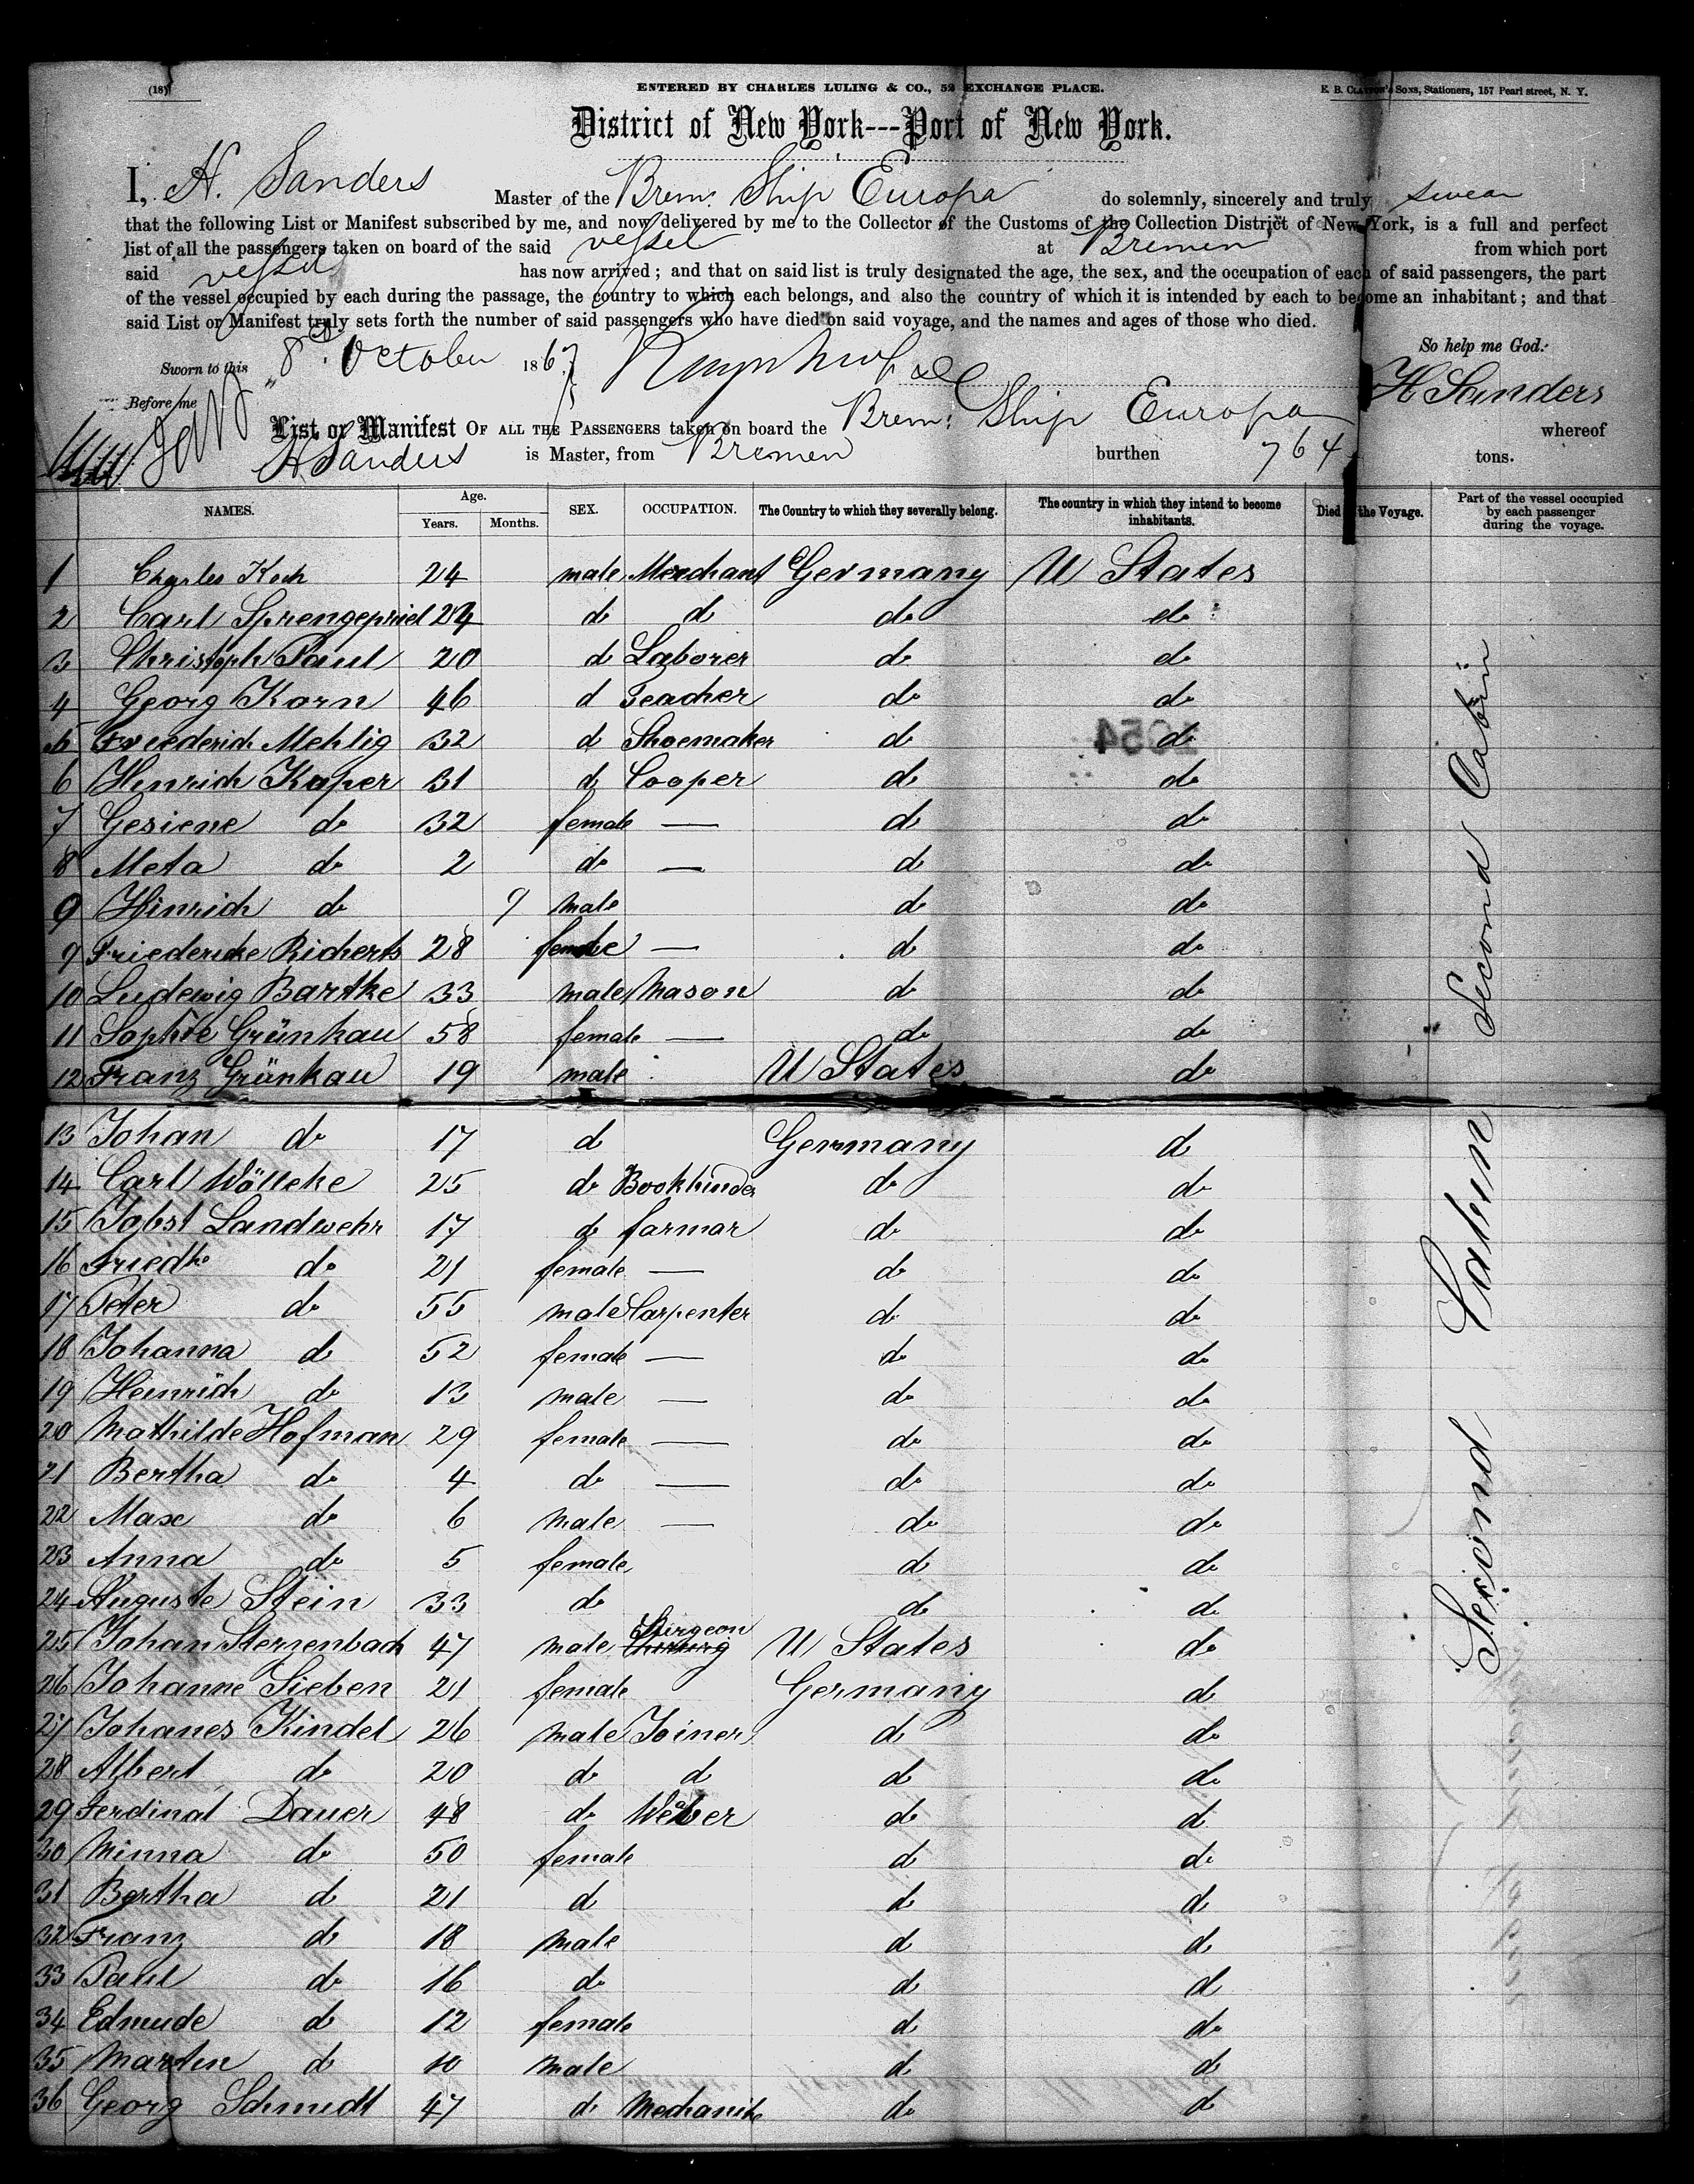 (18)
ENTERED BY CHARLES LULING & CO., 52 EXCHANGE PLACE.
E. B. CLAYTON'S SONS, Stationers, 157 Pearl street, N. Y.
District of New York---Port of New York.
I, H. Sanders Master of the Brem: Ship Europa do solemnly, sincerely and truly swear
that the following List or Manifest subscribed by me, and now delivered by me to the Collector of the Customs of the Collection District of New York, is a full and perfect
list of all the passengers taken on board of the said vessel at Bremen from which port
said vessel has now arrived; and that on said list is truly designated the age, the sex, and the occupation of each of said passengers, the part
of the vessel occupied by each during the passage, the country to which each belongs, and also the country of which it is intended by each to become an inhabitant; and that
said List or Manifest truly sets forth the number of said passengers who have died on said voyage, and the names and ages of those who died.
So help me God.
Sworn to this 8th October 1867
H Sanders
Before me
List or Manifest OF ALL THE PASSENGERS taken on board the Brem: Ship Europa whereof
H Sanders is Master, from Bremen burthen 764 tons.
NAMES. Age. Years. Months. SEX. OCCUPATION. The Country to which they severally belong. The country in which they intend to become inhabitants. Died the Voyage. Part of the vessel occupied by each passenger during the voyage.
1 Charles Koch 24 male Merchant Germany U States
2 Carl Sprengepriel 24 d d do do
3 Christoph Paul 20 d Laborer do do
4 Georg Korn 46 d Teacher do do
5 Friederich Mehlig 32 d Shoemaker do do
6 Hinrich Kaper 31 d Cooper do do
7 Gesiene do 32 female — do do
8 Meta do 2 do — do do
9 Hinrich do 9 male do do
9 Friedericke Richerts 28 female — do do
10 Ludewig Bartke 33 male Mason do do
11 Sophie Grünkau 58 female — do do
12 Franz Grünkau 19 male U States do
13 Johan do 17 d Germany d
14 Carl Wölleke 25 do Bookbinder do do
15 Jobst Landwehr 17 do farmar do do
16 Friedke do 21 female — do do
17 Peter do 55 male Carpenter do do
18 Johanna do 52 female — do do
19 Heinrich do 13 male — do do
20 Mathilde Hofman 29 female — do do
21 Bertha do 4 do — do do
22 Max do 6 male — do do
23 Anna do 5 female do do
24 Auguste Stein 33 do do do
25 Johan Sterzenbach 47 male Surgeon U States do
26 Johanne Sieben 21 female Germany d
27 Johanes Kindel 26 male Joiner d do
28 Albert do 20 do d d do
29 Ferdinat Dauer 48 do Weaver do d
30 Minna do 50 female d do
31 Bertha d 21 d d d
32 Franz d 18 male d d
33 Paul do 16 do d d
34 Edmude d 12 female d do
35 Marten d 10 male d d
36 Georg Schmidt 47 d Mechanik do d
Second Cabin
Second Cabin